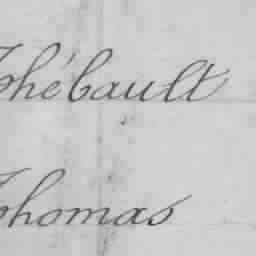 Thébault
Thomas